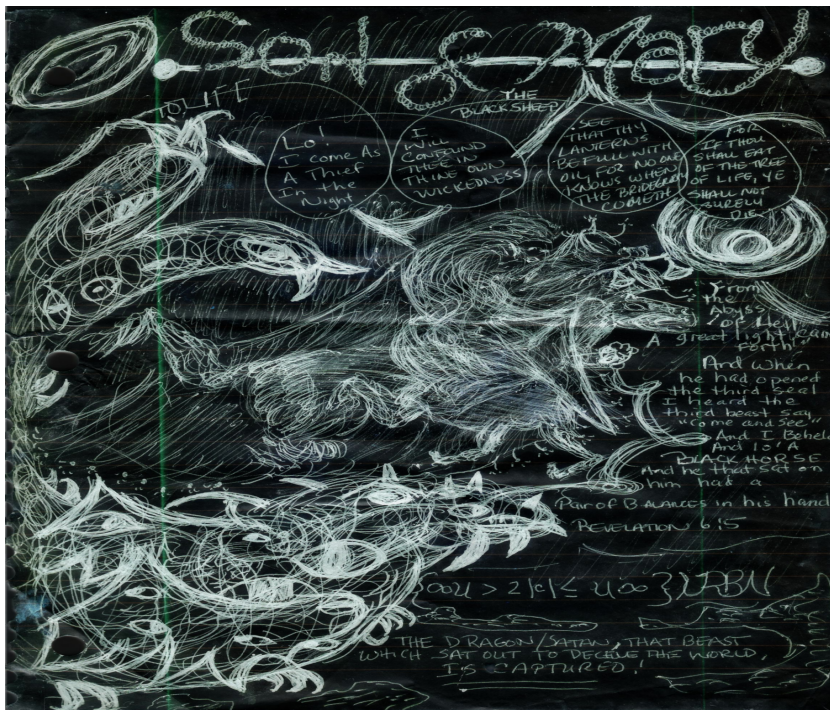 Son of Mary
THE
BLACK SHEEP
LIFE
Lo!
I come As
A Thief
In the
Night
I
WILL
CONFOUND
THEE IN
THINE OWN
WICKEDNESS
SEE
THAT THY
LANTERNS
BE FULL WITH
OIL, FOR NO ONE
KNOWS WHEN
THE BRIDEGROOM
COMETH
FOR
IF THOU
SHALL EAT
OF THE TREE
OF LIFE, YE
SHALL NOT
SURELY
DIE
From
the
Abyss
of Hell
A great light came
Forth!
And when
he had opened
the third seal
I heard the
third beast say
"come and see"
And I Behel
And lo! A
BLACK HORSE
And he that sat on
him had a
Pair of BALANCES in his hand
REVELATION 6:5
THE DRAGON/SATAN, THAT BEAST
WHICH SAT OUT TO DECEIVE THE WORLD,
IS CAPTURED!